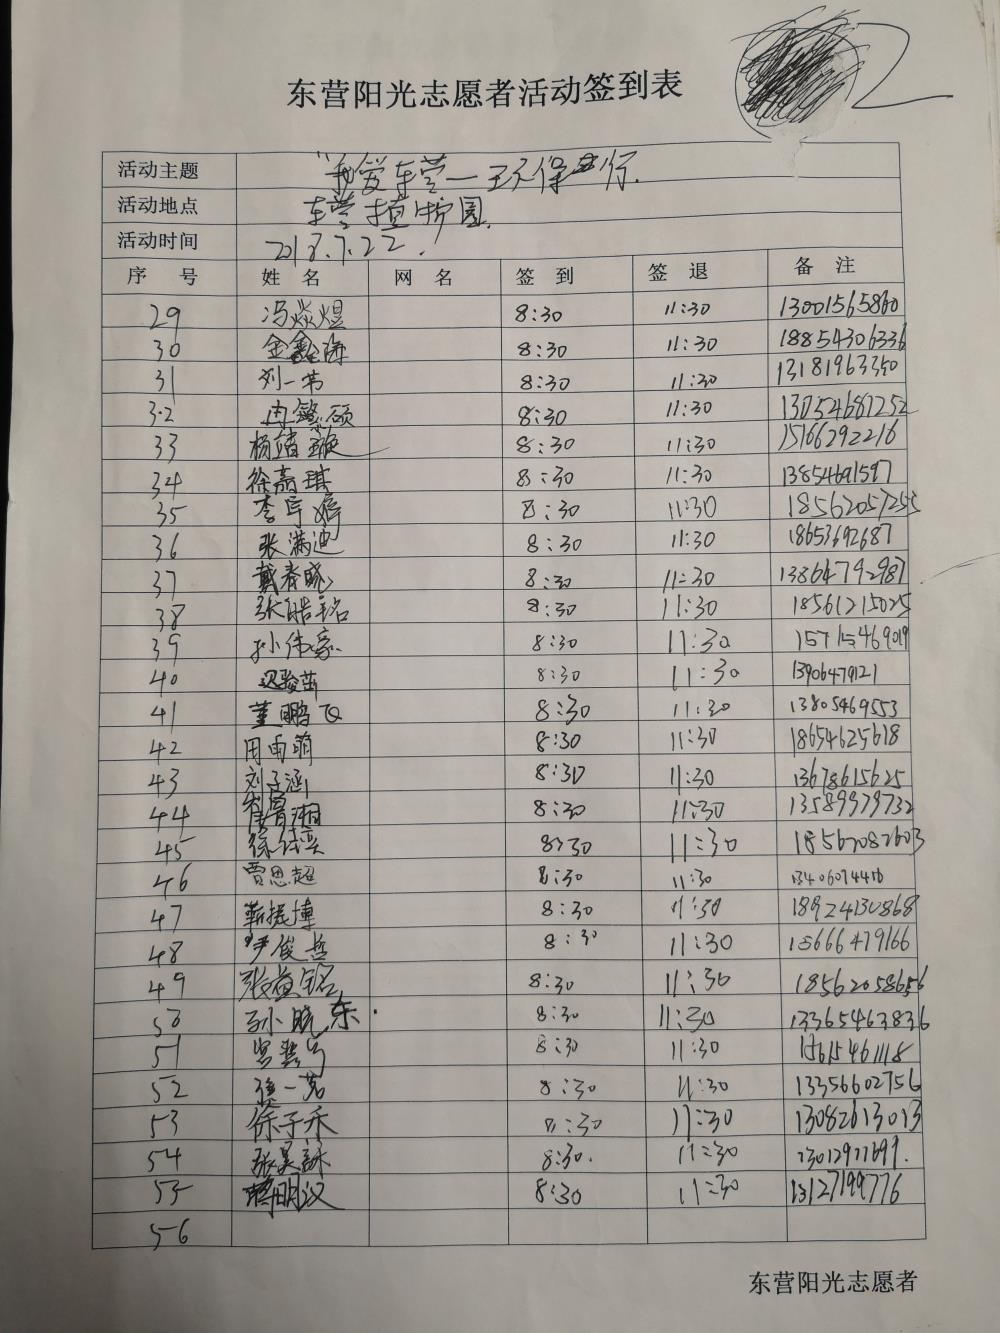 东营阳光志愿者活动签到表
2
活动主题 "我爱东营一环保 行.
活动地点 东营植 园.
活动时间 2018.7.22.
序 号 姓 名 网 名 签 到 签 退 备 注
29 冯焱煜 8:30 11:30 13001565860
30 金鑫海 8:30 11:30 18854306336
31 刘一芳 8:30 11:30 13181963350
32 冉繁硕 8:30 11:30 13054687252
33 杨靖璇 8:30 11:30 15166292216
34 徐高琪 8:30 11:30 13854691597
35 李 婷 8:30 11:30 18562057255
36 张满迪 8:30 11:30 18653692687
37 戴春晓 8:30 11:30 13864792987
38 张皓铭 8:30 11:30 18561215025
39 孙伟豪 8:30 11:30 15715469019
40 8:30 11:30 13906479121
41 董鹏飞 8:30 11:30 13805469553
42 周雨萌 8:30 11:30 18654625618
43 刘子涵 8:30 11:30 13678615625
44 8:30 11:30 13589979732
45 徐 奕 8:30 11:30 18562082603
46 贾思超 8:30 11:30 13406074410
47 靳振博 8:30 11:30 18924130868
48 尹俊哲 8:30 11:30 15666479166
49 张益铭 8:30 11:30 18562058656
50 孙晓东. 8:30 11:30 13365463836
51 8:30 11:30 15615461118
52 一茗 8:30 11:30 13356602756
53 徐子乔 8:30 11:30 13082613013
54 张昊 8:30. 11:30
55 蒋明汉 8:30 11:30 13127199776
56
东营阳光志愿者